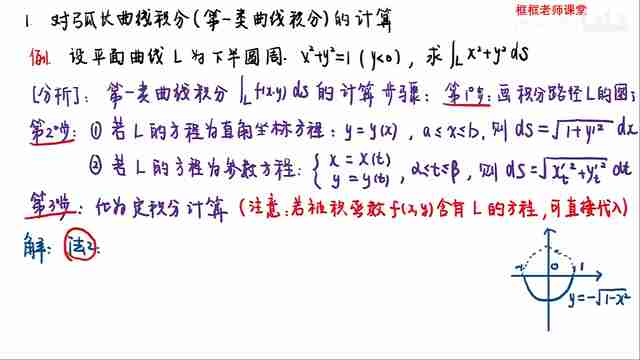 框框老师课堂
1. 对弧长曲线积分(第一类曲线积分)的计算
例1. 设平面曲线 L 为下半圆周. x²+y²=1 (y<0), 求∫_L x²+y² ds
[分析]: 第一类曲线积分∫_L f(x,y) ds 的计算步骤: 第1°步: 画积分路径L的图;
第2°步: ① 若 L 的方程为直角坐标方程: y=y(x), a≤x≤b, 则 ds=√(1+y'²) dx
② 若 L 的方程为参数方程: { x=x(t) y=y(t), α≤t≤β, 则 ds=√(x't²+y't²) dt
第3°步: 化为定积分计算 (注意: 若被积函数 f(x,y) 含有 L 的方程, 可直接代入)
解: 法2:
-1 0 1
y=-√(1-x²)